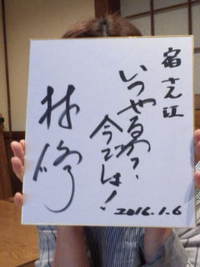 宿さん江
いつやるか?
今でしょ!
林修
2016.1.6